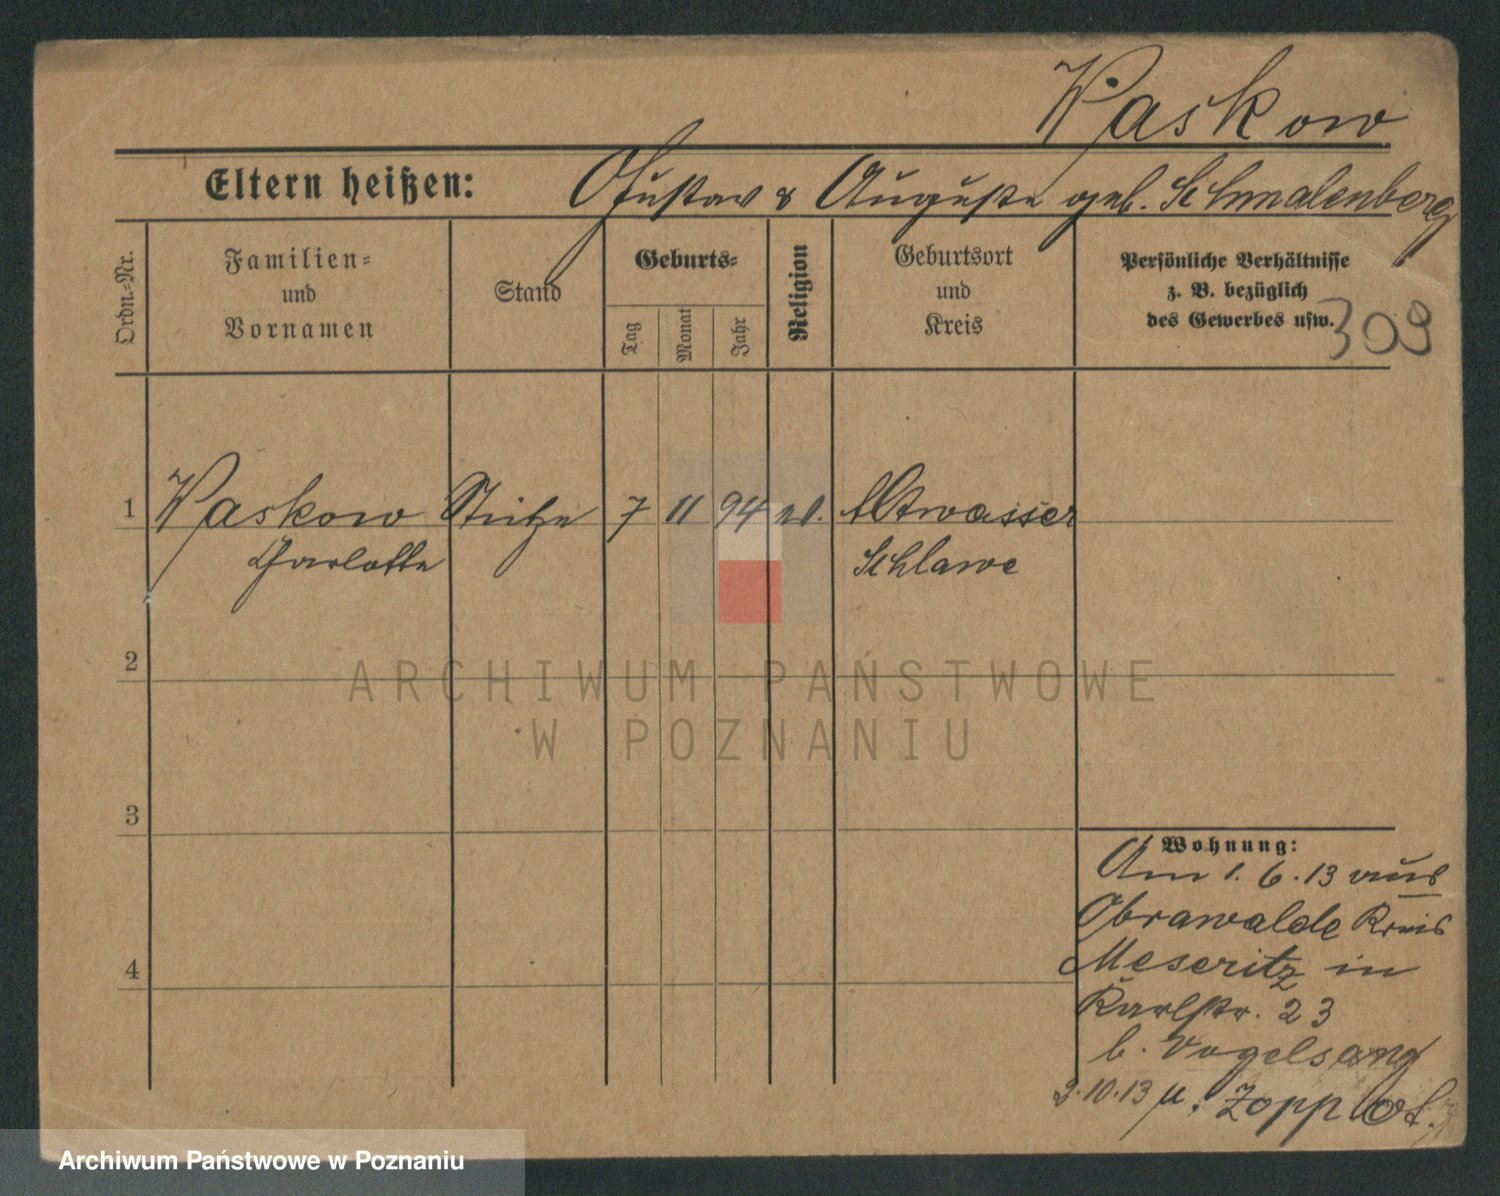 Waskow
Eltern heißen: Gustav & Auguste geb. Schmalenberg
Ordn.-Nr.
Familien-
und
Vornamen
Stand
Geburts-
Tag
Monat
Jahr
Religion
Geburtsort
und
Kreis
Persönliche Verhältnisse
z. B. bezüglich
des Gewerbes usw.
309
1 Waskow Stütze 7 11 94 ev. Altwasser
Charlotte Schlawe
2
3
4
Wohnung:
Am 1.6.13 aus
Obrawalde Kreis
Meseritz in
Karlstr. 23
b. Vogelsang
2.10.13 n. Zoppot.
ARCHIWUM PAŃSTWOWE
W POZNANIU
Archiwum Państwowe w Poznaniu